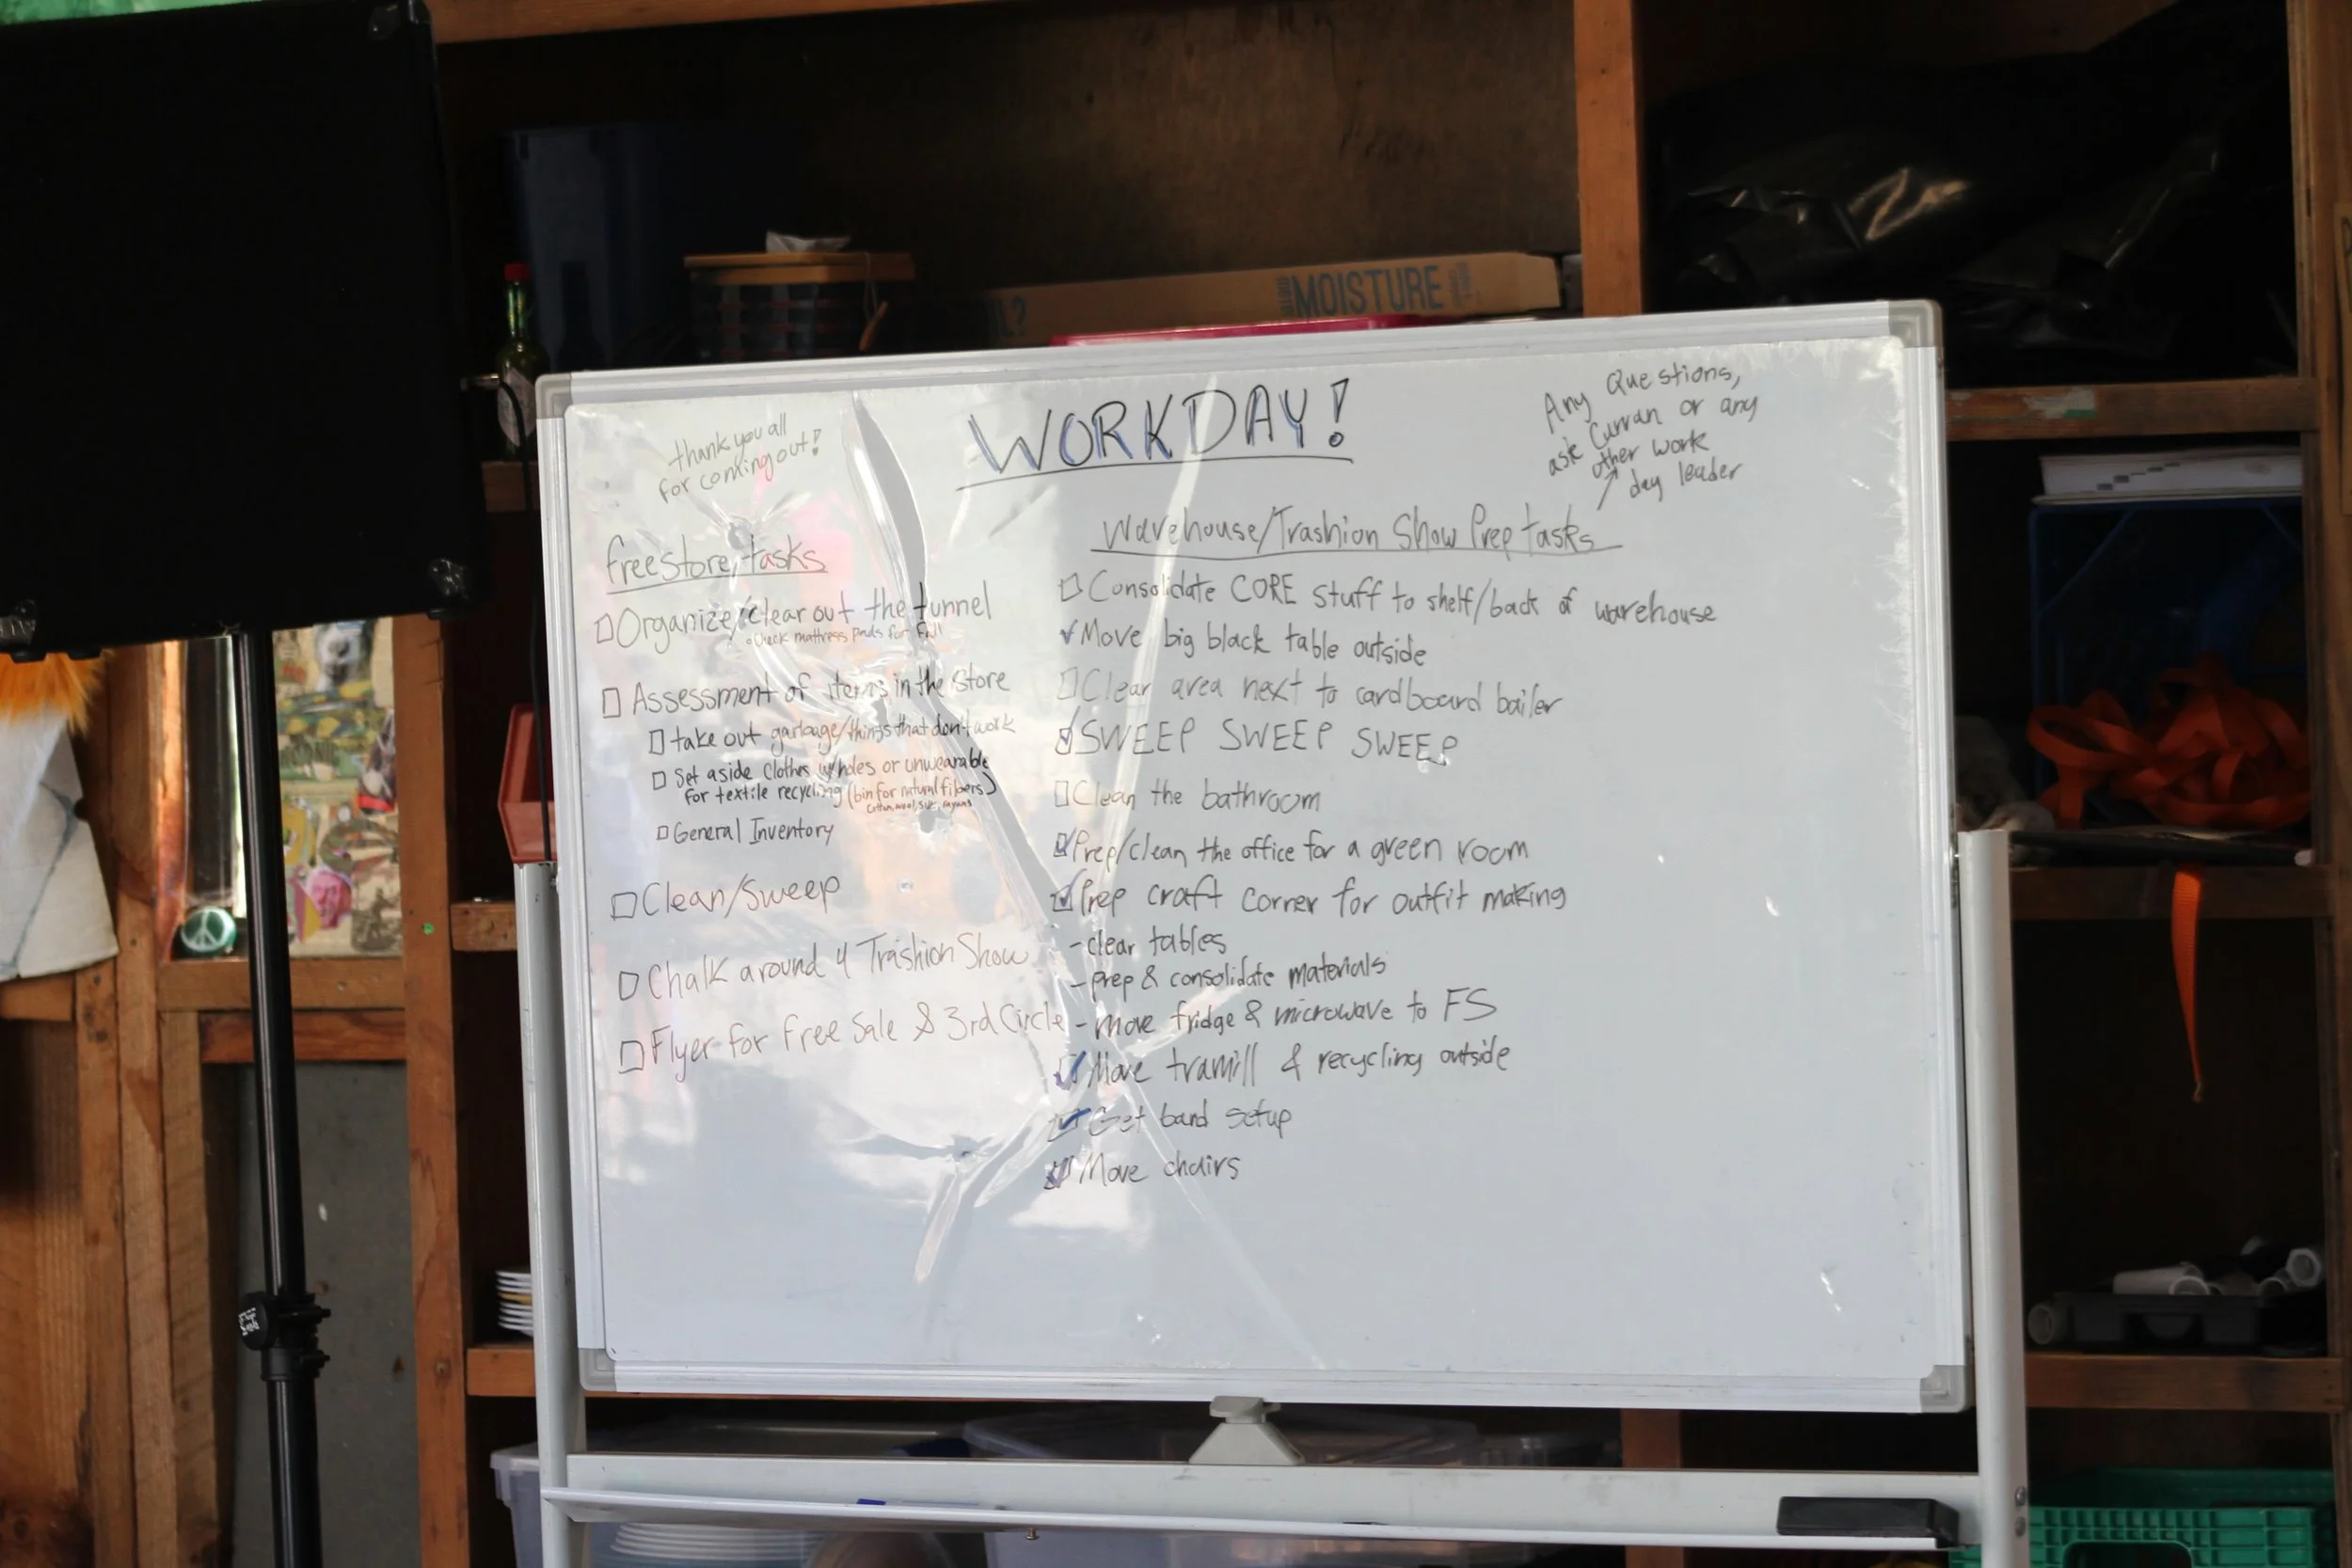 MOISTURE
WORKDAY!
thank you all
for coming out!
Any Questions,
ask Curran or any
other work
day leader
free store tasks
☐ Organize/clear out the tunnel
◦ check mattress pads for
☐ Assessment of items in the store
☐ take out garbage/things that don't work
☐ Set aside clothes w/holes or unwearable
for textile recycling (bin for natural fibers)
☐ General Inventory
☐ Clean/Sweep
☐ Chalk around 4 Trashion Show
☐ Flyer for Free Sale & 3rd Circle
Warehouse/Trashion Show Prep tasks
☐ Consolidate CORE stuff to shelf/back of warehouse
✓ Move big black table outside
☐ Clear area next to cardboard bailer
☑ SWEEP SWEEP SWEEP
☐ Clean the bathroom
☑ Prep/clean the office for a green room
☑ Prep craft corner for outfit making
- clear tables
- prep & consolidate materials
- move fridge & microwave to FS
☑ Move tramill & recycling outside
☑ Get band setup
☑ Move chairs